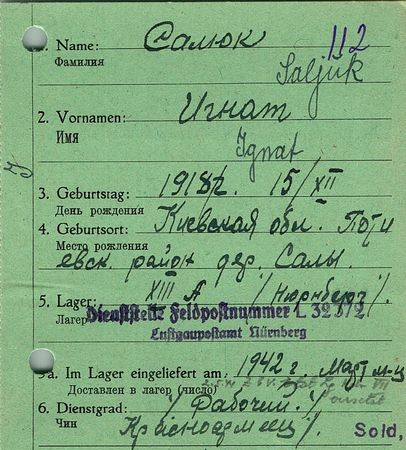 1. Name: Салюк 112
Фамилия
Saljuk
2. Vornamen: Игнат
Имя
Ignat
3. Geburtstag: 1918г. 15/XII
День рождения
4. Geburtsort: Киевская обл. Поти
Место рождения
евск. район дер. Салы.
5. Lager: XIII A "/Нюрнберг"/.
Лагерь
Dienststelle Feldpostnummer L 32 872
Luftgaupostamt Nürnberg
5a. Im Lager eingeliefert am: 1942 г. Март м-ц
Доставлен в лагерь (число)
6. Dienstgrad: "/Рабочий."/
Чин Красноармеец"/. Sold,